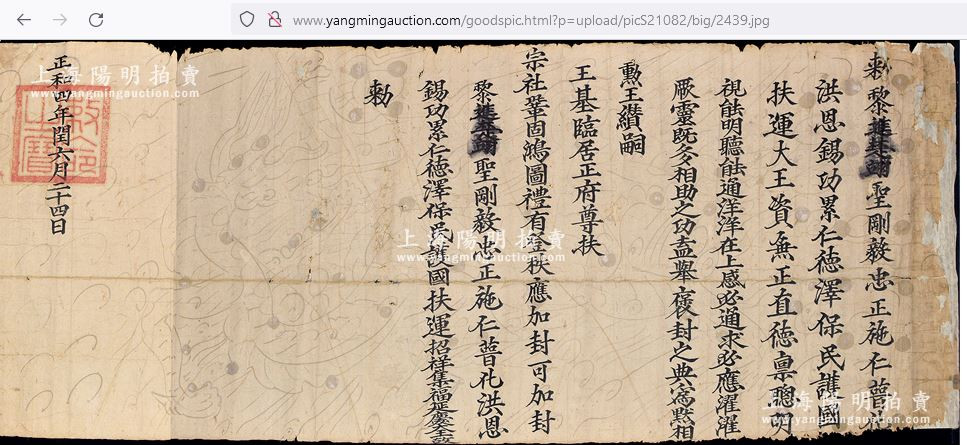 www.yangmingauction.com/goodspic.html?p=upload/picS21082/big/2439.jpg
敕黎聖剛毅忠正施仁普
洪恩錫功累仁德澤保民護國
扶運大王資無正直德禀聰明
視能明聽能通洋洋在上感必通求必應濯濯
厥靈既多相助之功盍舉褒封之典為默相
勲王纘嗣
王基臨居正府尊扶
宗社鞏固鴻圖禮有登秩應加封可加封
黎聖剛毅忠正施仁普孔洪恩
錫功累仁德澤保民護國扶運招祥集福
敕
正和四年閏六月二十四日
敕命之寶
上海陽明拍賣
www.yangmingauction.com
上海陽明拍賣
www.yangmingauction.com
上海陽明拍賣
www.yangmingauction.com